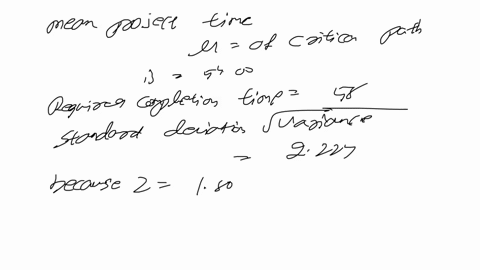 mean project time
μ = of critica path
is = 54.00
Required completion time = 58
Standard deviation √Variance
= 2.227
because Z = 1.80